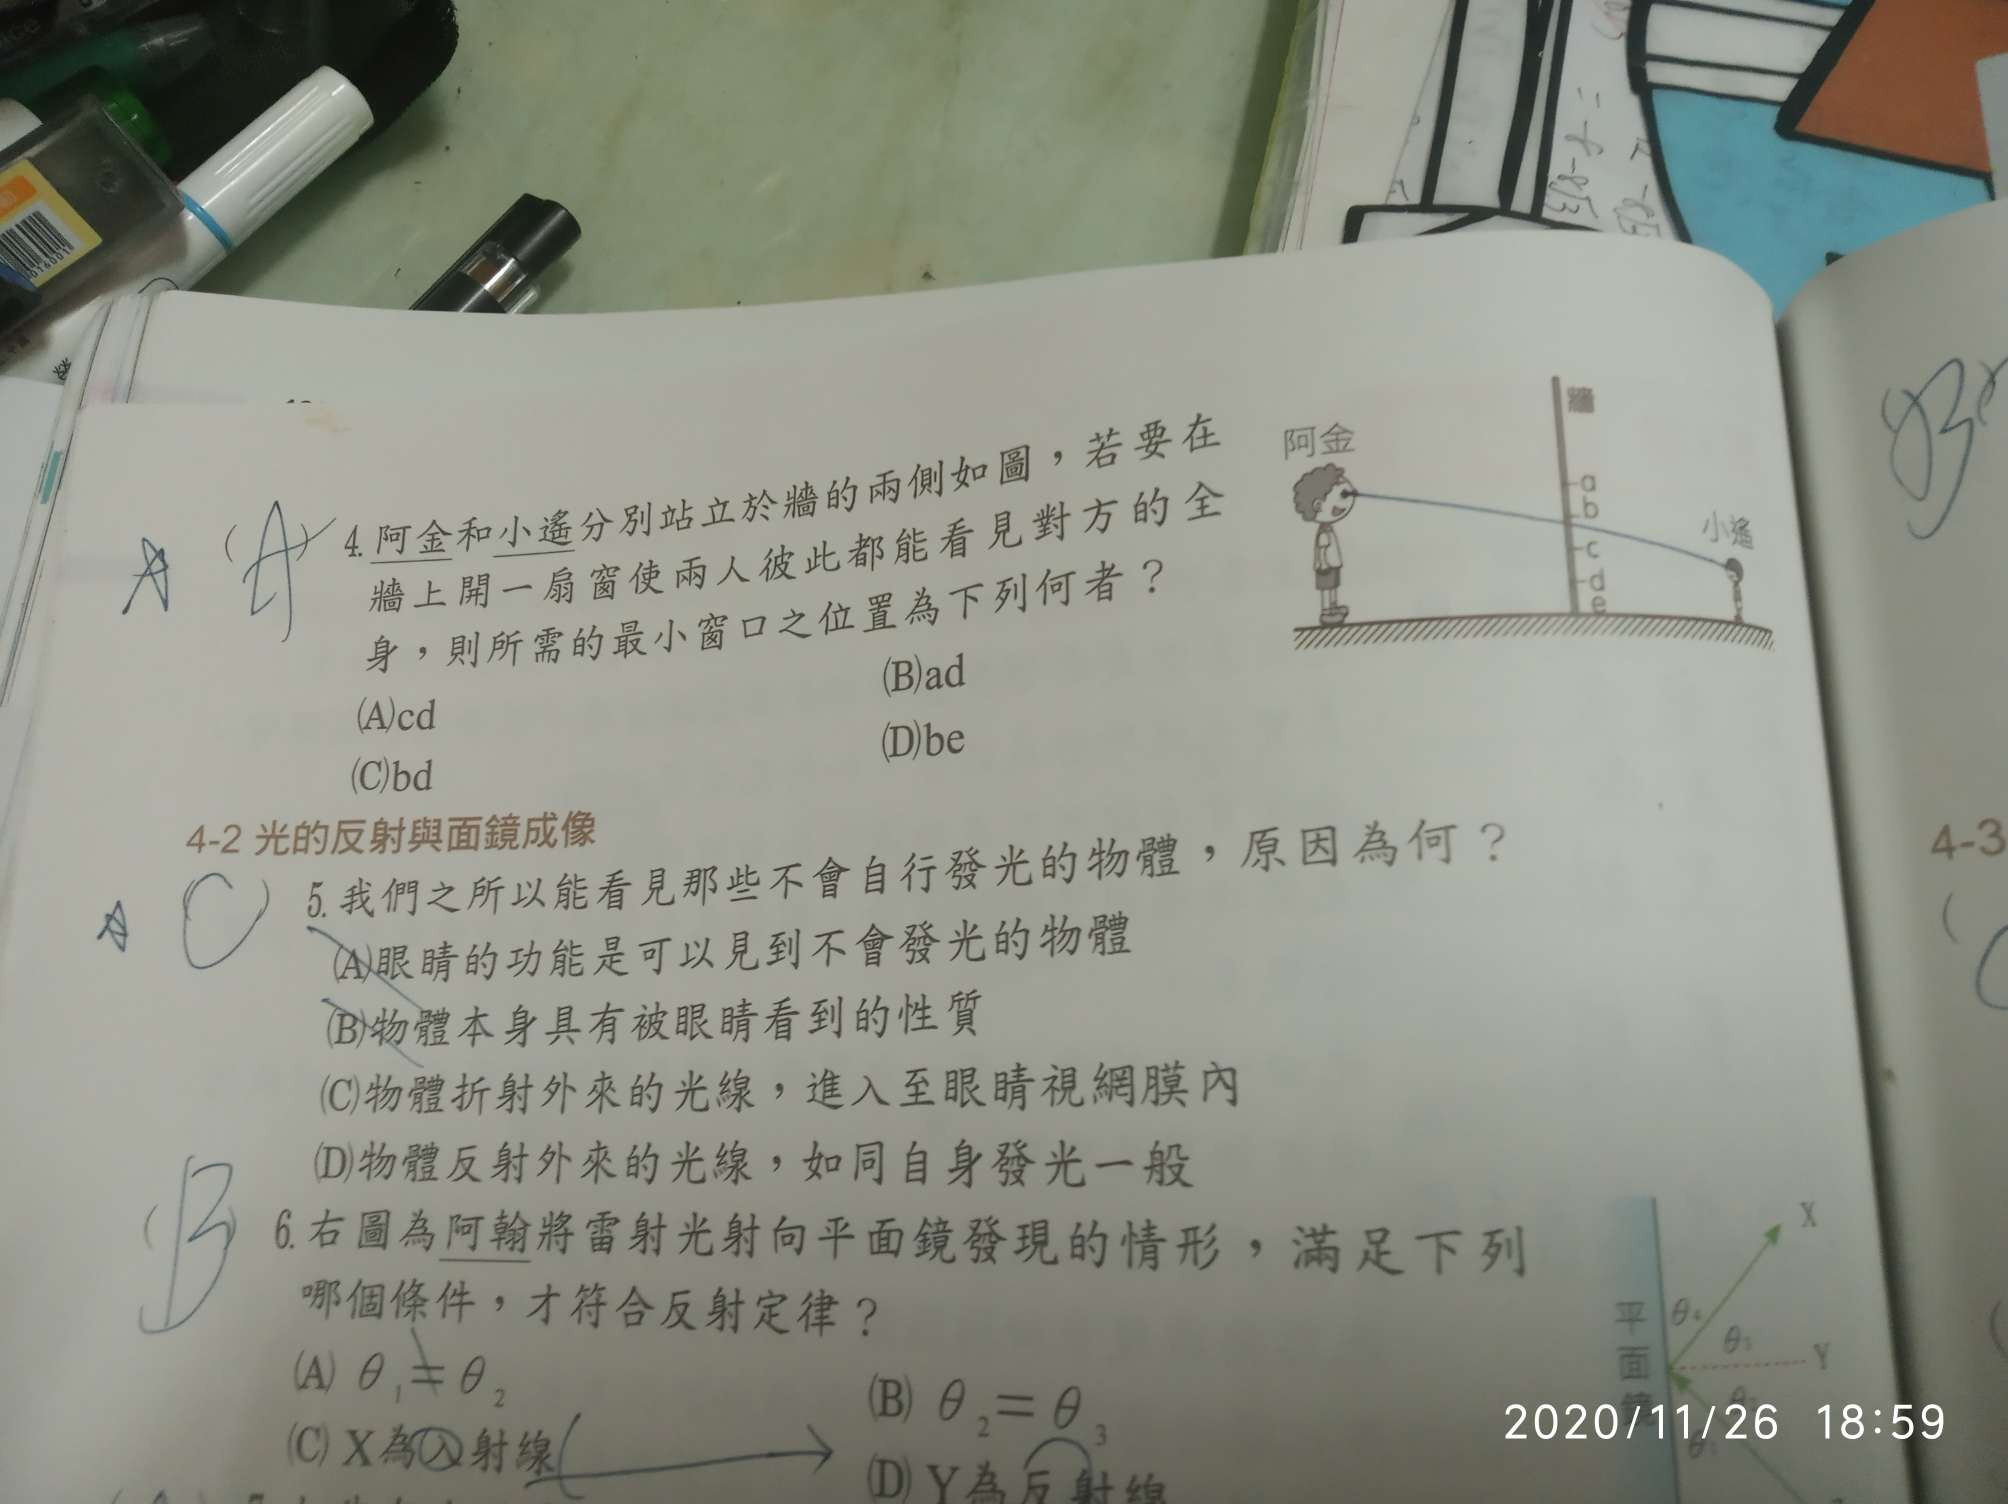 (A) 4. 阿金和小遙分別站立於牆的兩側如圖，若要在
牆上開一扇窗使兩人彼此都能看見對方的全
身，則所需的最小窗口之位置為下列何者？
(A)cd
(B)ad
(C)bd
(D)be
阿金
牆
a
b
c
d
e
小遙
4-2 光的反射與面鏡成像
C 5. 我們之所以能看見那些不會自行發光的物體，原因為何？
(A)眼睛的功能是可以見到不會發光的物體
(B)物體本身具有被眼睛看到的性質
(C)物體折射外來的光線，進入至眼睛視網膜內
(D)物體反射外來的光線，如同自身發光一般
(B) 6. 右圖為阿翰將雷射光射向平面鏡發現的情形，滿足下列
哪個條件，才符合反射定律？
(A) θ₁＝θ₂
(B) θ₂＝θ₃
(C) X為入射線
(D) Y為反射線
X
θ₄
θ₃
Y
平面鏡
4-3
2020/11/26 18:59